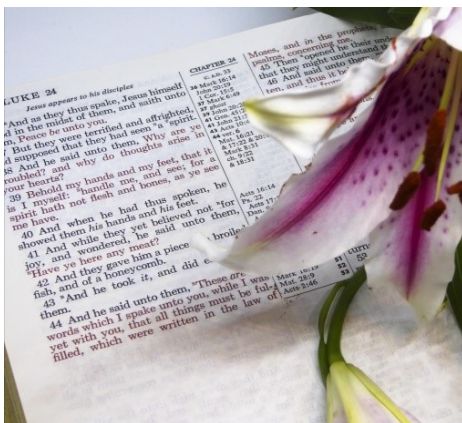 LUKE 24
Jesus appears to his disciples
"And as they thus spake, Jesus himself
in the midst of them, and saith unto
Peace be unto you.
But they were terrified and affrighted,
supposed that they had seen "a" spirit.
38 And he said unto them, Why are ye
and why do thoughts arise in
your hearts?
39 Behold my hands and my feet, that it
is I myself: "handle me, and see; for a
spirit hath not flesh and bones, as ye see
me have.
40 And when he had thus spoken, he
showed them his hands and his feet.
41 And while they yet believed not "for
joy, and wondered, he said unto them,
"Have ye here any meat?
42 And they gave him a piece
fish, and of a honeycomb.
43 "And he took it, and did
them.
44 And he said unto them, "These are
words which I spake unto you, while I was
yet with you, that all things must be ful-
filled, which were written in the law of
CHAPTER 24
A.D. 33
36 Mark 16:14
John 20:19
1 Cor. 15:5
37 Mark 6:49
39 John 20:20
41 Gen. 45:26
43 Acts 10:41
44 ver. 46
Mark 8:31
ch. 9:22
& 18:31
Acts 16:14
Ps. 22
Acts 17
Dan.
Mat. 28:9
Acts 2:46
51
52
53
Moses, and in the prophets,
psalms, concerning me.
45 Then "opened he their
that they might understand
46 And said unto them